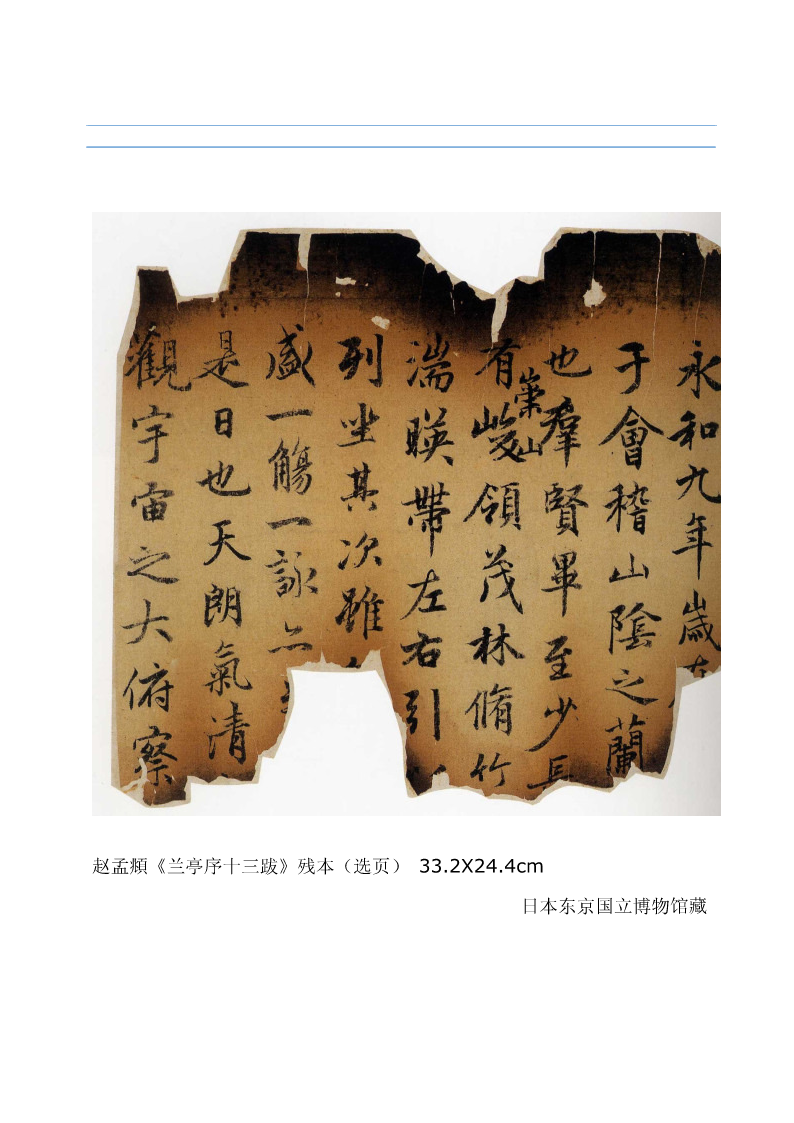 永和九年歲在
于會稽山陰之蘭
也羣賢畢至少長
有崇山峻領茂林脩竹
湍暎帶左右引
列坐其次雖
盛一觴一詠亦
是日也天朗氣清
觀宇宙之大俯察
赵孟頫《兰亭序十三跋》残本（选页） 33.2X24.4cm
日本东京国立博物馆藏